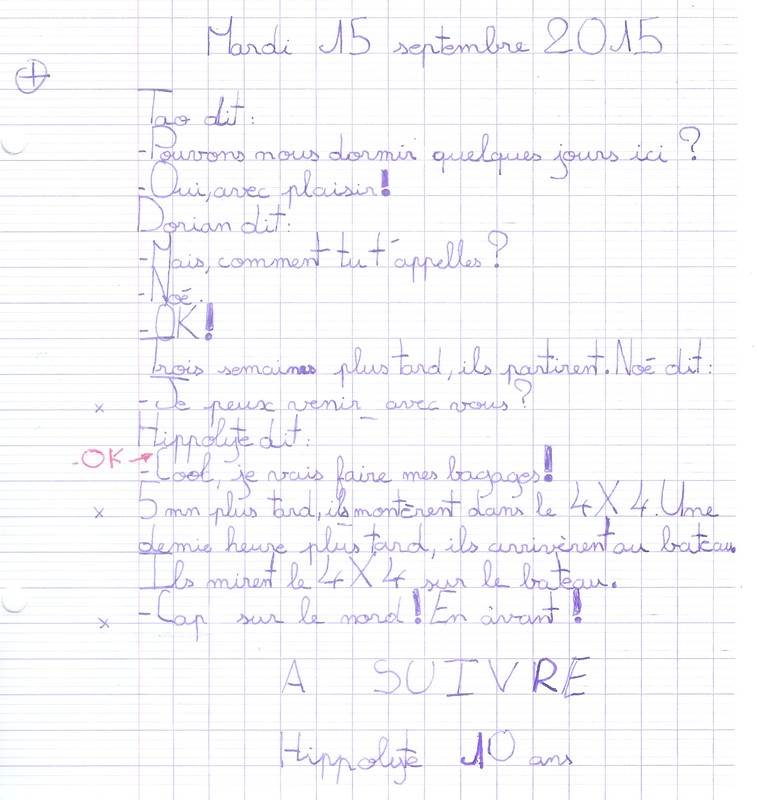 Mardi 15 septembre 2015
Tao dit:
-Pouvons nous dormir quelques jours ici ?
-Oui, avec plaisir!
Dorian dit:
-Mais, comment tu t'appelles ?
-Noé.
-OK!
Trois semaines plus tard, ils partirent. Noé dit:
x -Je peux venir avec vous ?
Hippolyte dit:
-OK →
-Cool, je vais faire mes bagages!
x 5 mn plus tard, ils montèrent dans le 4X4. Une
demie heure plus tard, ils arrivèrent au bateau.
Ils mirent le 4X4 sur le bateau.
x -Cap sur le nord! En avant!
A SUIVRE
Hippolyte 10 ans